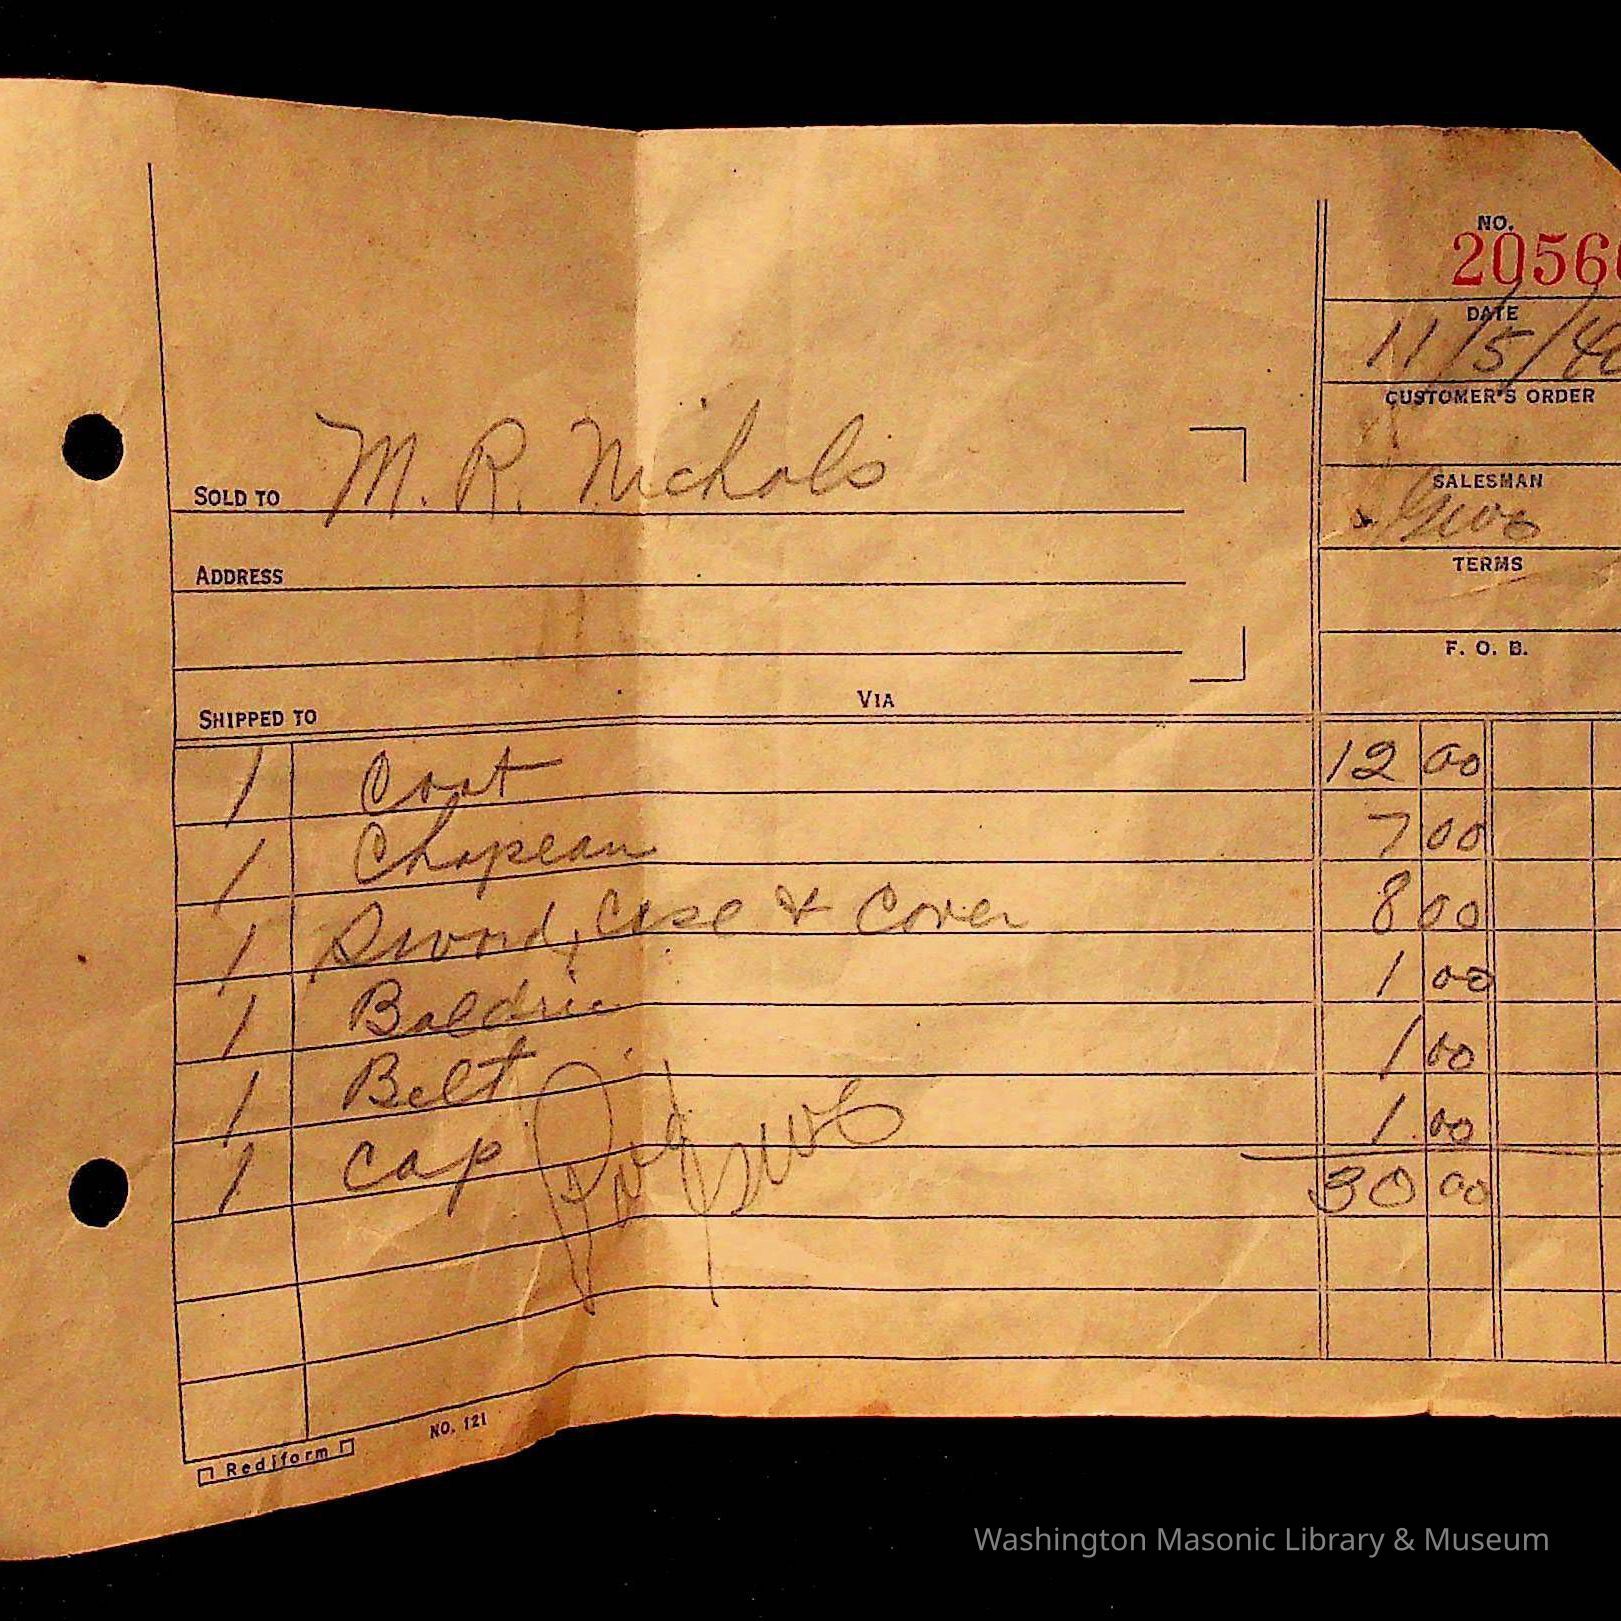 NO.
2056
DATE
11/5/4
CUSTOMER'S ORDER
M. R. Nichols
SOLD TO
SALESMAN
ADDRESS
TERMS
F. O. B.
SHIPPED TO VIA
1 Coat 12 00
1 Chapeau 7 00
1 Sword, Case & Cover 8 00
1 Baldric 1 00
1 Belt 1 00
1 Cap 1.00
30 00
Rediform NO. 121
Washington Masonic Library & Museum